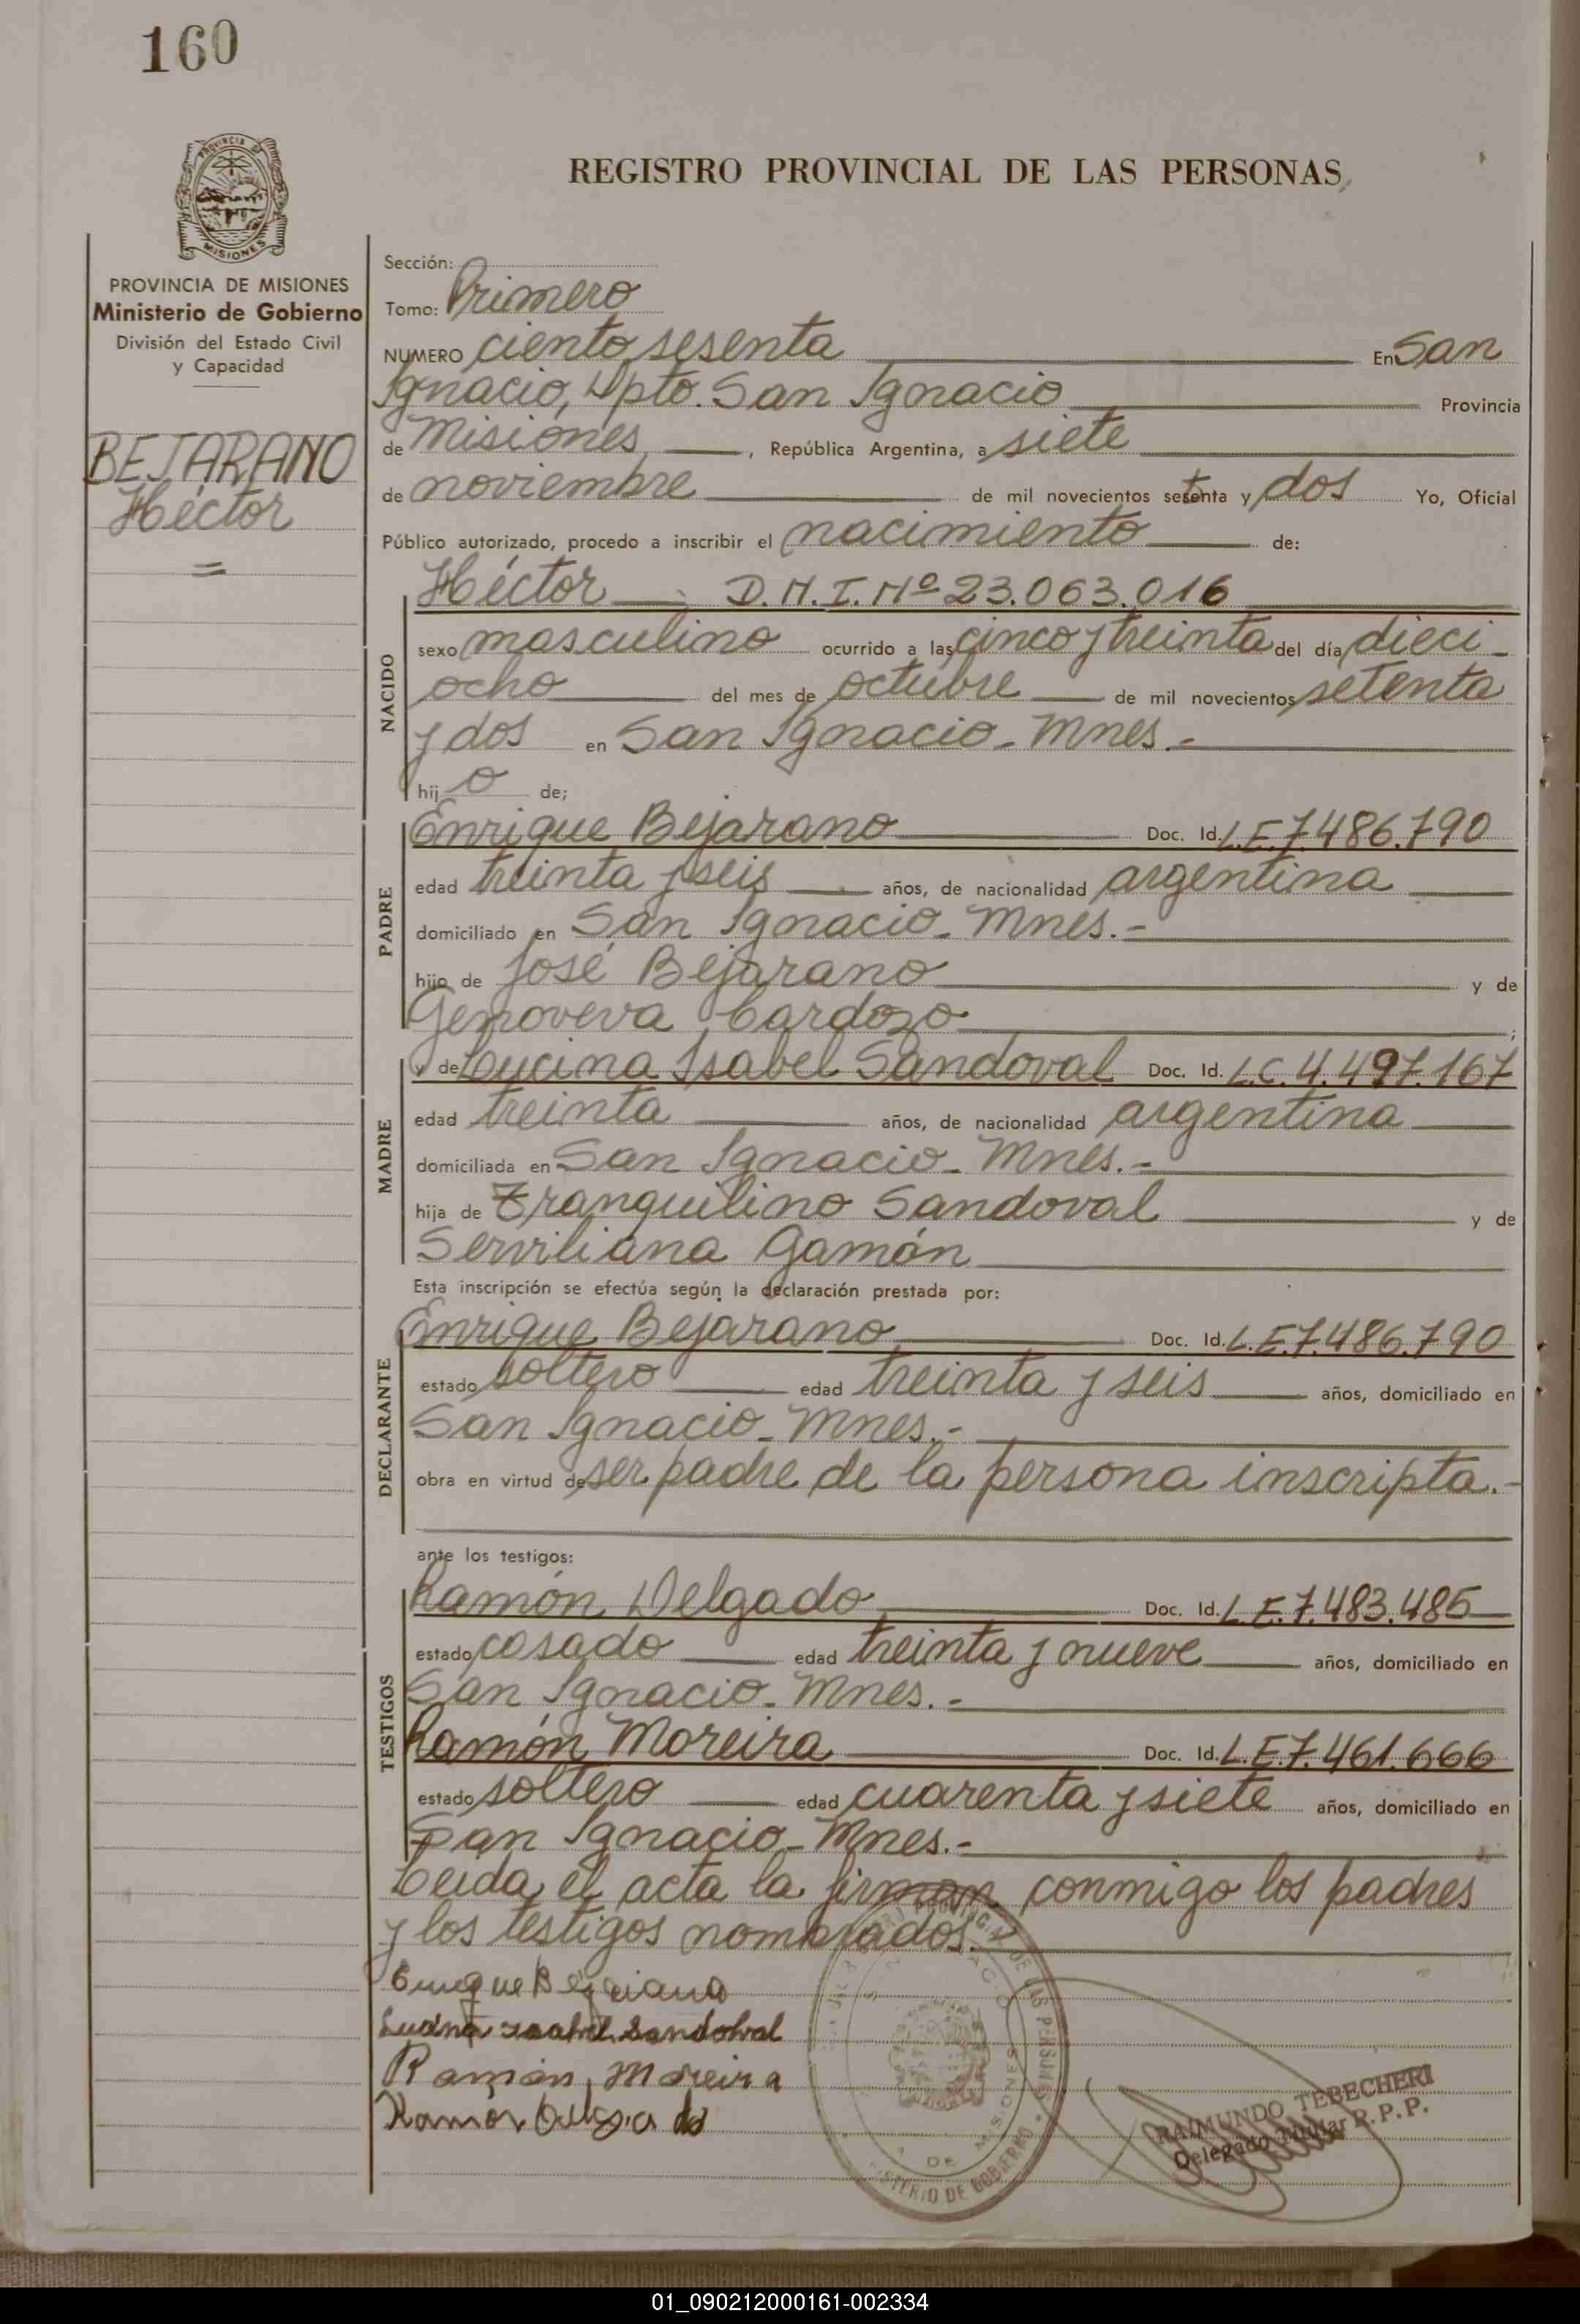 160
REGISTRO PROVINCIAL DE LAS PERSONAS
PROVINCIA DE MISIONES
Ministerio de Gobierno
División del Estado Civil
y Capacidad
BEJARANO
Héctor
Sección:
Tomo: Primero
NUMERO ciento sesenta En San
Ignacio, Dpto. San Ignacio Provincia
de Misiones, República Argentina, a siete
de noviembre de mil novecientos setenta y dos Yo, Oficial
Público autorizado, procedo a inscribir el nacimiento de:
Héctor D.N.I. Nº 23.063.016
NACIDO
sexo masculino ocurrido a las cinco y treinta del día dieci-
ocho del mes de octubre de mil novecientos setenta
y dos en San Ignacio - Mnes.-
hij o de;
PADRE
Enrique Bejarano Doc. Id. L.E. 7.486.790
edad treinta y seis años, de nacionalidad argentina
domiciliado en San Ignacio - Mnes.-
hijo de José Bejarano y de
Genoveva Cardozo ;
MADRE
y de Lucina Isabel Sandoval Doc. Id. L.C. 4.497.167
edad treinta años, de nacionalidad argentina
domiciliada en San Ignacio - Mnes.-
hija de Tranquilino Sandoval y de
Serviliana Gamón
Esta inscripción se efectúa según la declaración prestada por:
DECLARANTE
Enrique Bejarano Doc. Id. L.E. 7.486.790
estado soltero edad treinta y seis años, domiciliado en
San Ignacio - Mnes.-
obra en virtud de ser padre de la persona inscripta.-
ante los testigos:
TESTIGOS
Ramón Delgado Doc. Id. L.E. 7.483.485
estado casado edad treinta y nueve años, domiciliado en
San Ignacio - Mnes.-
Ramón Moreira Doc. Id. L.E. 7.461.666
estado soltero edad cuarenta y siete años, domiciliado en
San Ignacio - Mnes.-
Leída el acta la firman conmigo los padres
y los testigos nombrados.
Enrique Bejarano
Isabel Sandoval
Ramón Moreira
Ramon Delgado
MINISTERIO DE GOBIERNO
RAIMUNDO TEBECHERI
Delegado R.P.P.
01_090212000161-002334